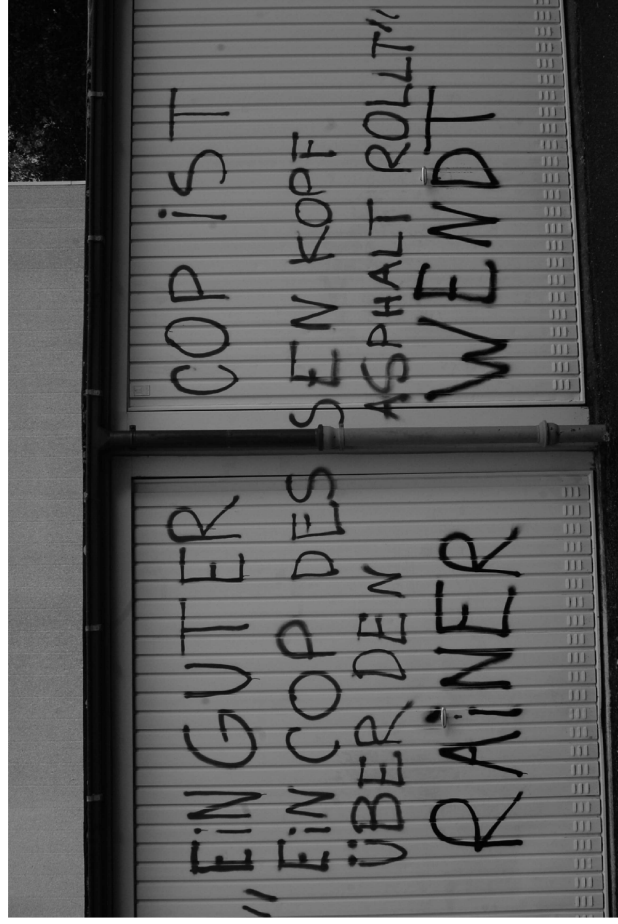 "EiN GUTER COP iST
EiN COP DESSEN KOPF
ÜBER DEN ASPHALT ROLLT"
RAiNER WENDT